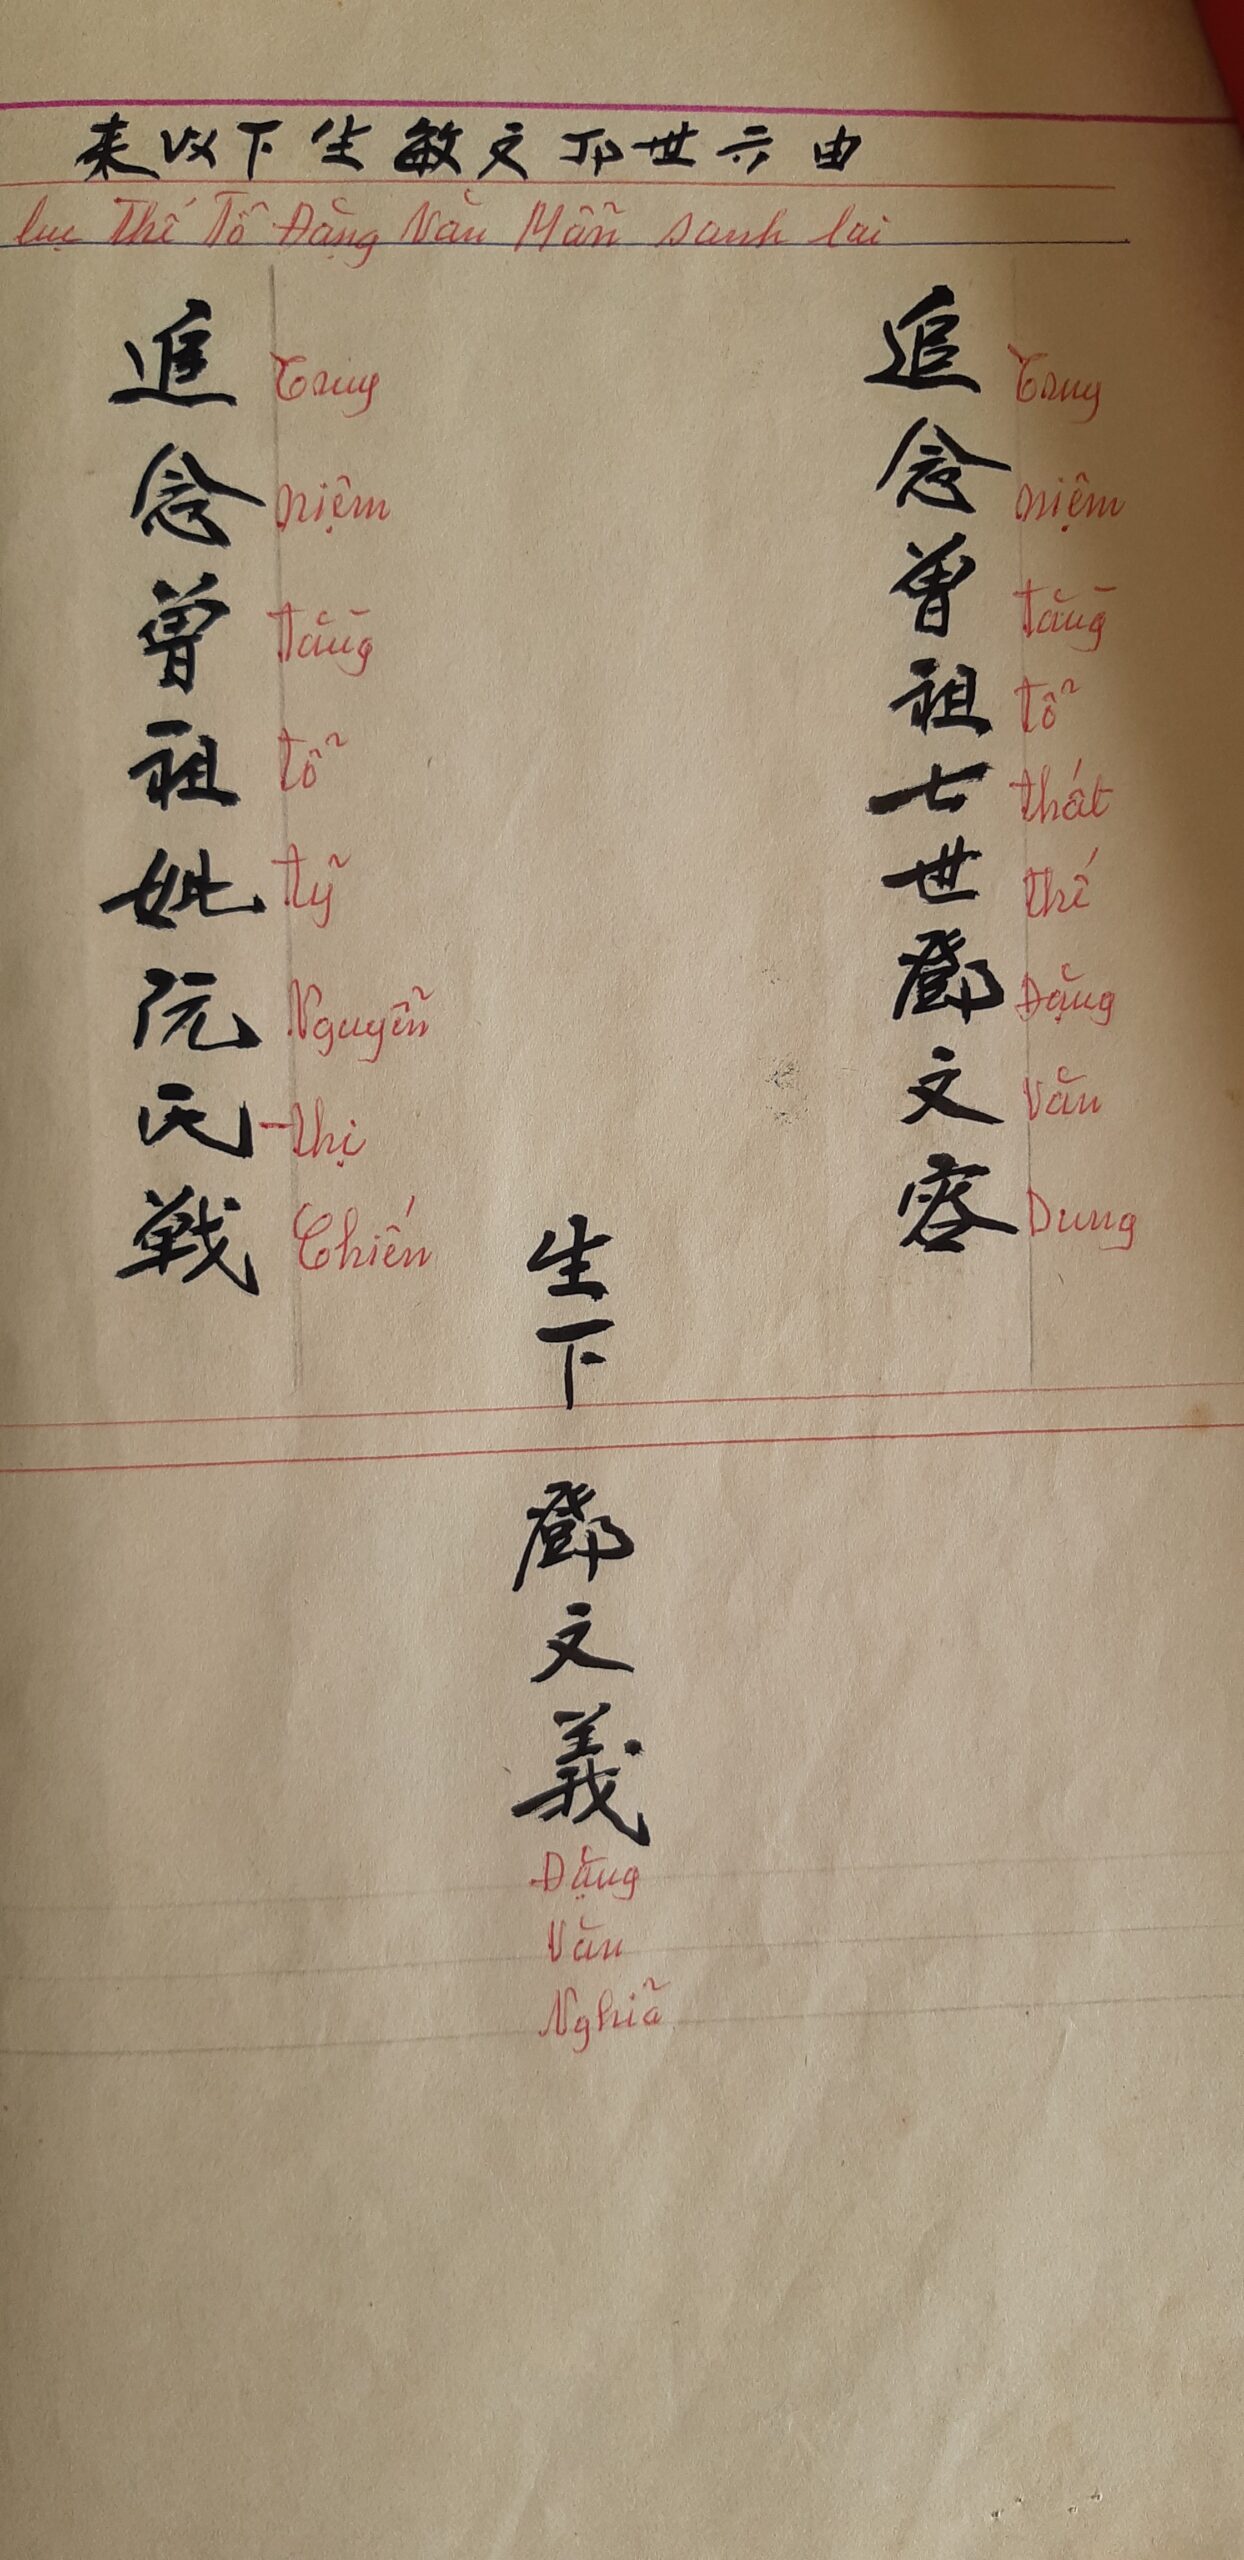 由六世邓文敏生下以来
lục Thế Tổ Đặng Văn Mẫn sanh lai
追念曾祖七世鄧文容
Truy niệm tằng tổ thất thế Đặng Văn Dung
追念曾祖妣阮氏戦
Truy niệm tằng tổ tỷ Nguyễn thị Chiến
生下
鄧文義
Đặng
Văn
Nghĩa